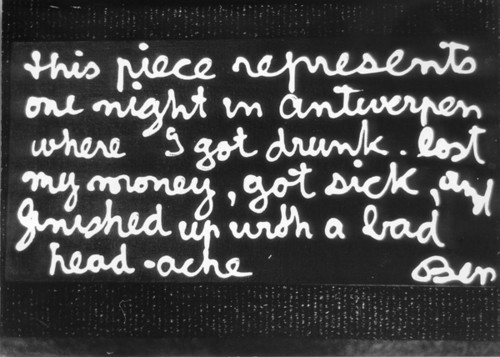 this piece represents
one night in antwerpen
where I got drunk. lost
my money, got sick, and
finished up with a bad
head-ache
Ben